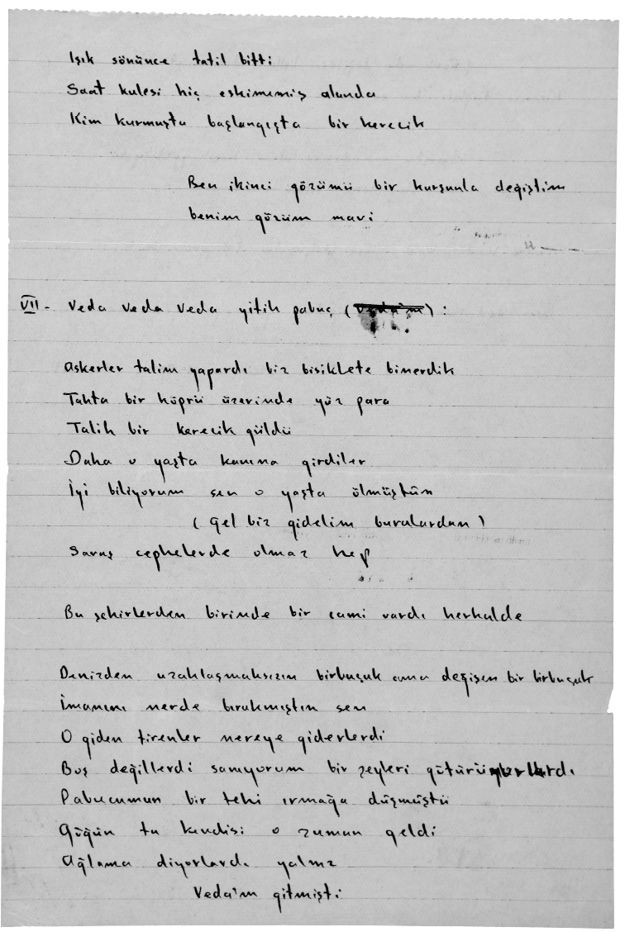 Işık sönünce tatil bitti
Saat kulesi hiç eskimemiş alanda
Kim kurmuştu başlangıçta bir kerecik
Ben ikinci gözümü bir kurşunla değiştim
benim gözüm mavi
VII- Veda veda veda yitik pabuç (veda'm) :
Askerler talim yapardı biz bisiklete binerdik
Tahta bir köprü üzerinde yüz para
Talih bir kerecik güldü
Daha o yaşta kanına girdiler
İyi biliyorum sen o yaşta ölmüştün
(Gel biz gidelim buralardan)
Savaş cephelerde olmaz hep
Bu şehirlerden birinde bir cami vardı herhalde
Denizden uzaklaşmaksızın birbuçuk ama değişen bir birbuçuk
İmanını nerde bırakmıştın sen
O giden tirenler nereye giderlerdi
Boş değillerdi sanıyorum bir şeyleri götürüyorlardı
Pabucumun bir teki ırmağa düşmüştü
Göğün ta kendisi o zaman geldi
Ağlama diyorlardı yalnız
Veda'm gitmişti